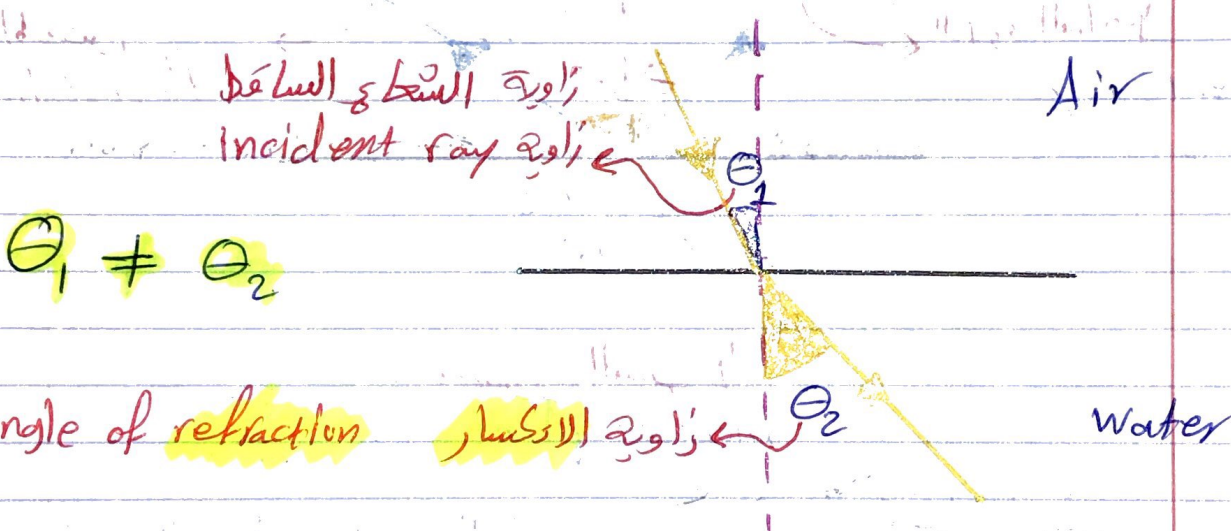 زاوية الشعاع الساقط
Air
Incident ray زاوية
θ1
θ1 ≠ θ2
ngle of refraction زاوية الانكسار
θ2
Water